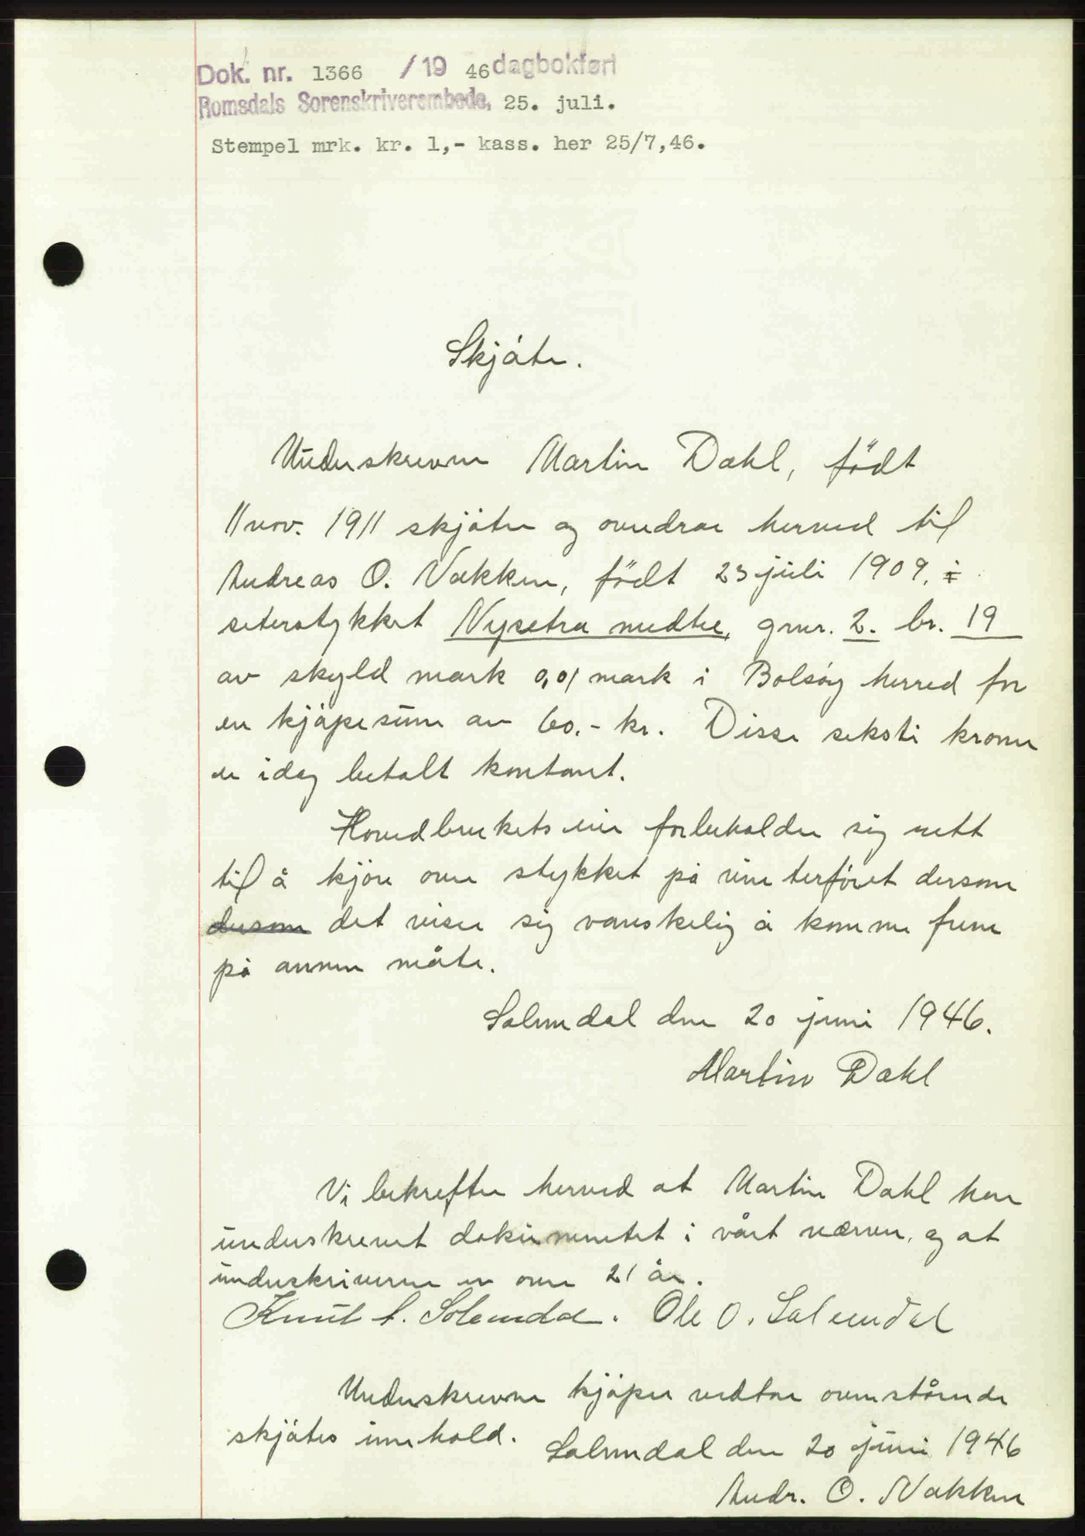 Dok. nr. 1366 /19 46 dagbokført
Romsdals Sorenskriverembede, 25. juli.
Stempel mrk. kr. 1,- kass. her 25/7,46.
Skjøte.
Underskrevne Martin Dahl, födt
11 nov. 1911 skjøter og overdrar herved til
Andreas O. Nakken, födt 23 juli 1909, i
seterstykket Nysetra nedre, gnr. 2. br. 19
av skyld mark 0,01 mark i Bolsøy herred for
en kjøpesum av 60.- kr. Disse seksti kroner
er idag betalt kontant.
Hovedbrukets eier forbeholder sig rett
til å kjøre over stykket på vinterføret dersom
dersom det viser sig vanskelig å komme frem
på annen måte.
Solemdal den 20 juni 1946.
Martin Dahl
Vi bekrefter herved at Martin Dahl har
underskrevet dokumentet i vårt nærver, og at
underskriveren er over 21 år.
Knut Solemdal. Ole O. Solemdal
Underskrevne kjøper vedtar ovenstående
skjøtes innhold.
Solemdal den 20 juni 1946
Andr. O. Nakken